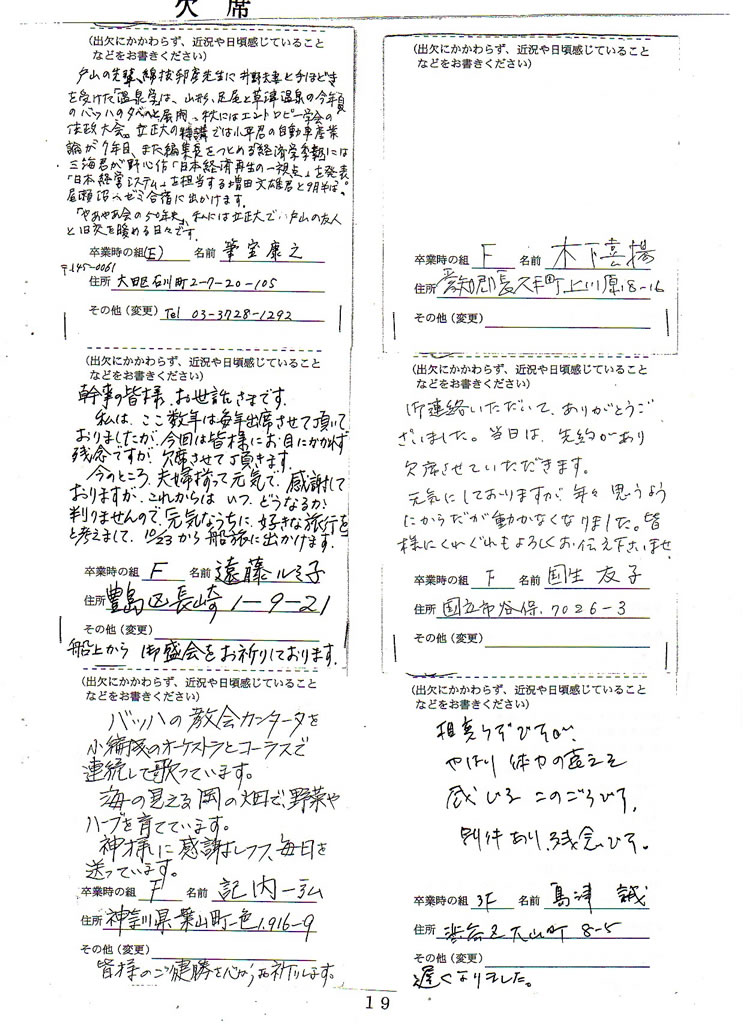 欠 席
(出欠にかかわらず、近況や日頃感じていること
などをお書きください)
戸山の先輩、綿抜邦彦先生に井野夫妻と手ほどき
を受けた「温泉学」は、山形、足尾と草津温泉の今年夏
のバッハの夕べのと展開、秋にはエントロピー学会の
法政大会。立正大の特講では小平君の自動車産業
論が7年目、また編集長をつとめる「経済学季報」には
三海君が野心作「日本経済再生の一視点」を発表。
「日本経営システム」を担当する増田文雄君と9月半ば、
尾瀬沼へゼミ合宿に出かけます。
「やあやあ会の50年史」、私には立正大で、戸山の友人
と旧交を暖める日々です。
卒業時の組 (E) 名前 筆宝康之
〒145-0061
住所 大田区石川町2-7-20-105
その他(変更) Tel 03-3728-1292
(出欠にかかわらず、近況や日頃感じていること
などをお書きください)
幹事の皆様、お世話さまです。
私は、ここ数年は毎年出席させて頂いて
おりましたが、今回は皆様にお目にかかれず
残念ですが、欠席させて頂きます。
今のところ、夫婦揃って元気で、感謝して
おりますが、これからは いつ、どうなるか
判りませんので、元気なうちに、好きな旅行を
と考えまして、10/23から船旅に出かけます。
卒業時の組 F 名前 遠藤ルミ子
住所 豊島区長崎1-9-21
その他(変更)
船上から 御盛会をお祈りしております。
(出欠にかかわらず、近況や日頃感じていること
などをお書きください)
バッハの教会カンタータを
小編成のオーケストラとコーラスで
連続して歌っています。
海の見える岡の畑で、野菜や
ハーブを育てています。
神様に感謝しつつ、毎日を
送っています。
卒業時の組 F 名前 記内一弘
住所 神奈川県葉山町一色1,916-9
その他(変更)
皆様のご健勝を心からお祈りします。
(出欠にかかわらず、近況や日頃感じていること
などをお書きください)
卒業時の組 F 名前 木下喜揚
住所 愛知郡長久手町上川原18-16
その他(変更)
(出欠にかかわらず、近況や日頃感じていること
などをお書きください)
御連絡いただいて、ありがとうご
ざいました。当日は、先約があり
欠席させていただきます。
元気にしておりますが、年々 思うよう
にからだが動かなくなりました。皆
様にくれぐれもよろしくお伝え下さいませ
卒業時の組 F 名前 国生 友子
住所 国立市谷保、7026-3
その他(変更)
(出欠にかかわらず、近況や日頃感じていること
などをお書きください)
相変らずですが、
やはり 体力の衰えを
感じる このごろです。
別件あり、残念です。
卒業時の組 3F 名前 島津 誠
住所 渋谷区大山町 8-5
その他(変更)
遅くなりました。
19